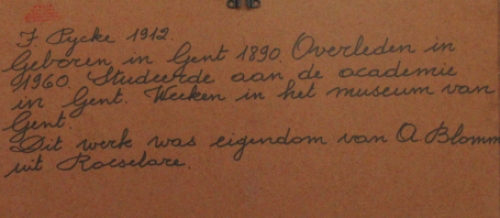 F. Pycke 1912.
Geboren in Gent 1890. Overleden in
1960. Studeerde aan de academie
in Gent. Werken in het museum van
Gent.
Dit werk was eigendom van A Blomm
uit Roeselare.